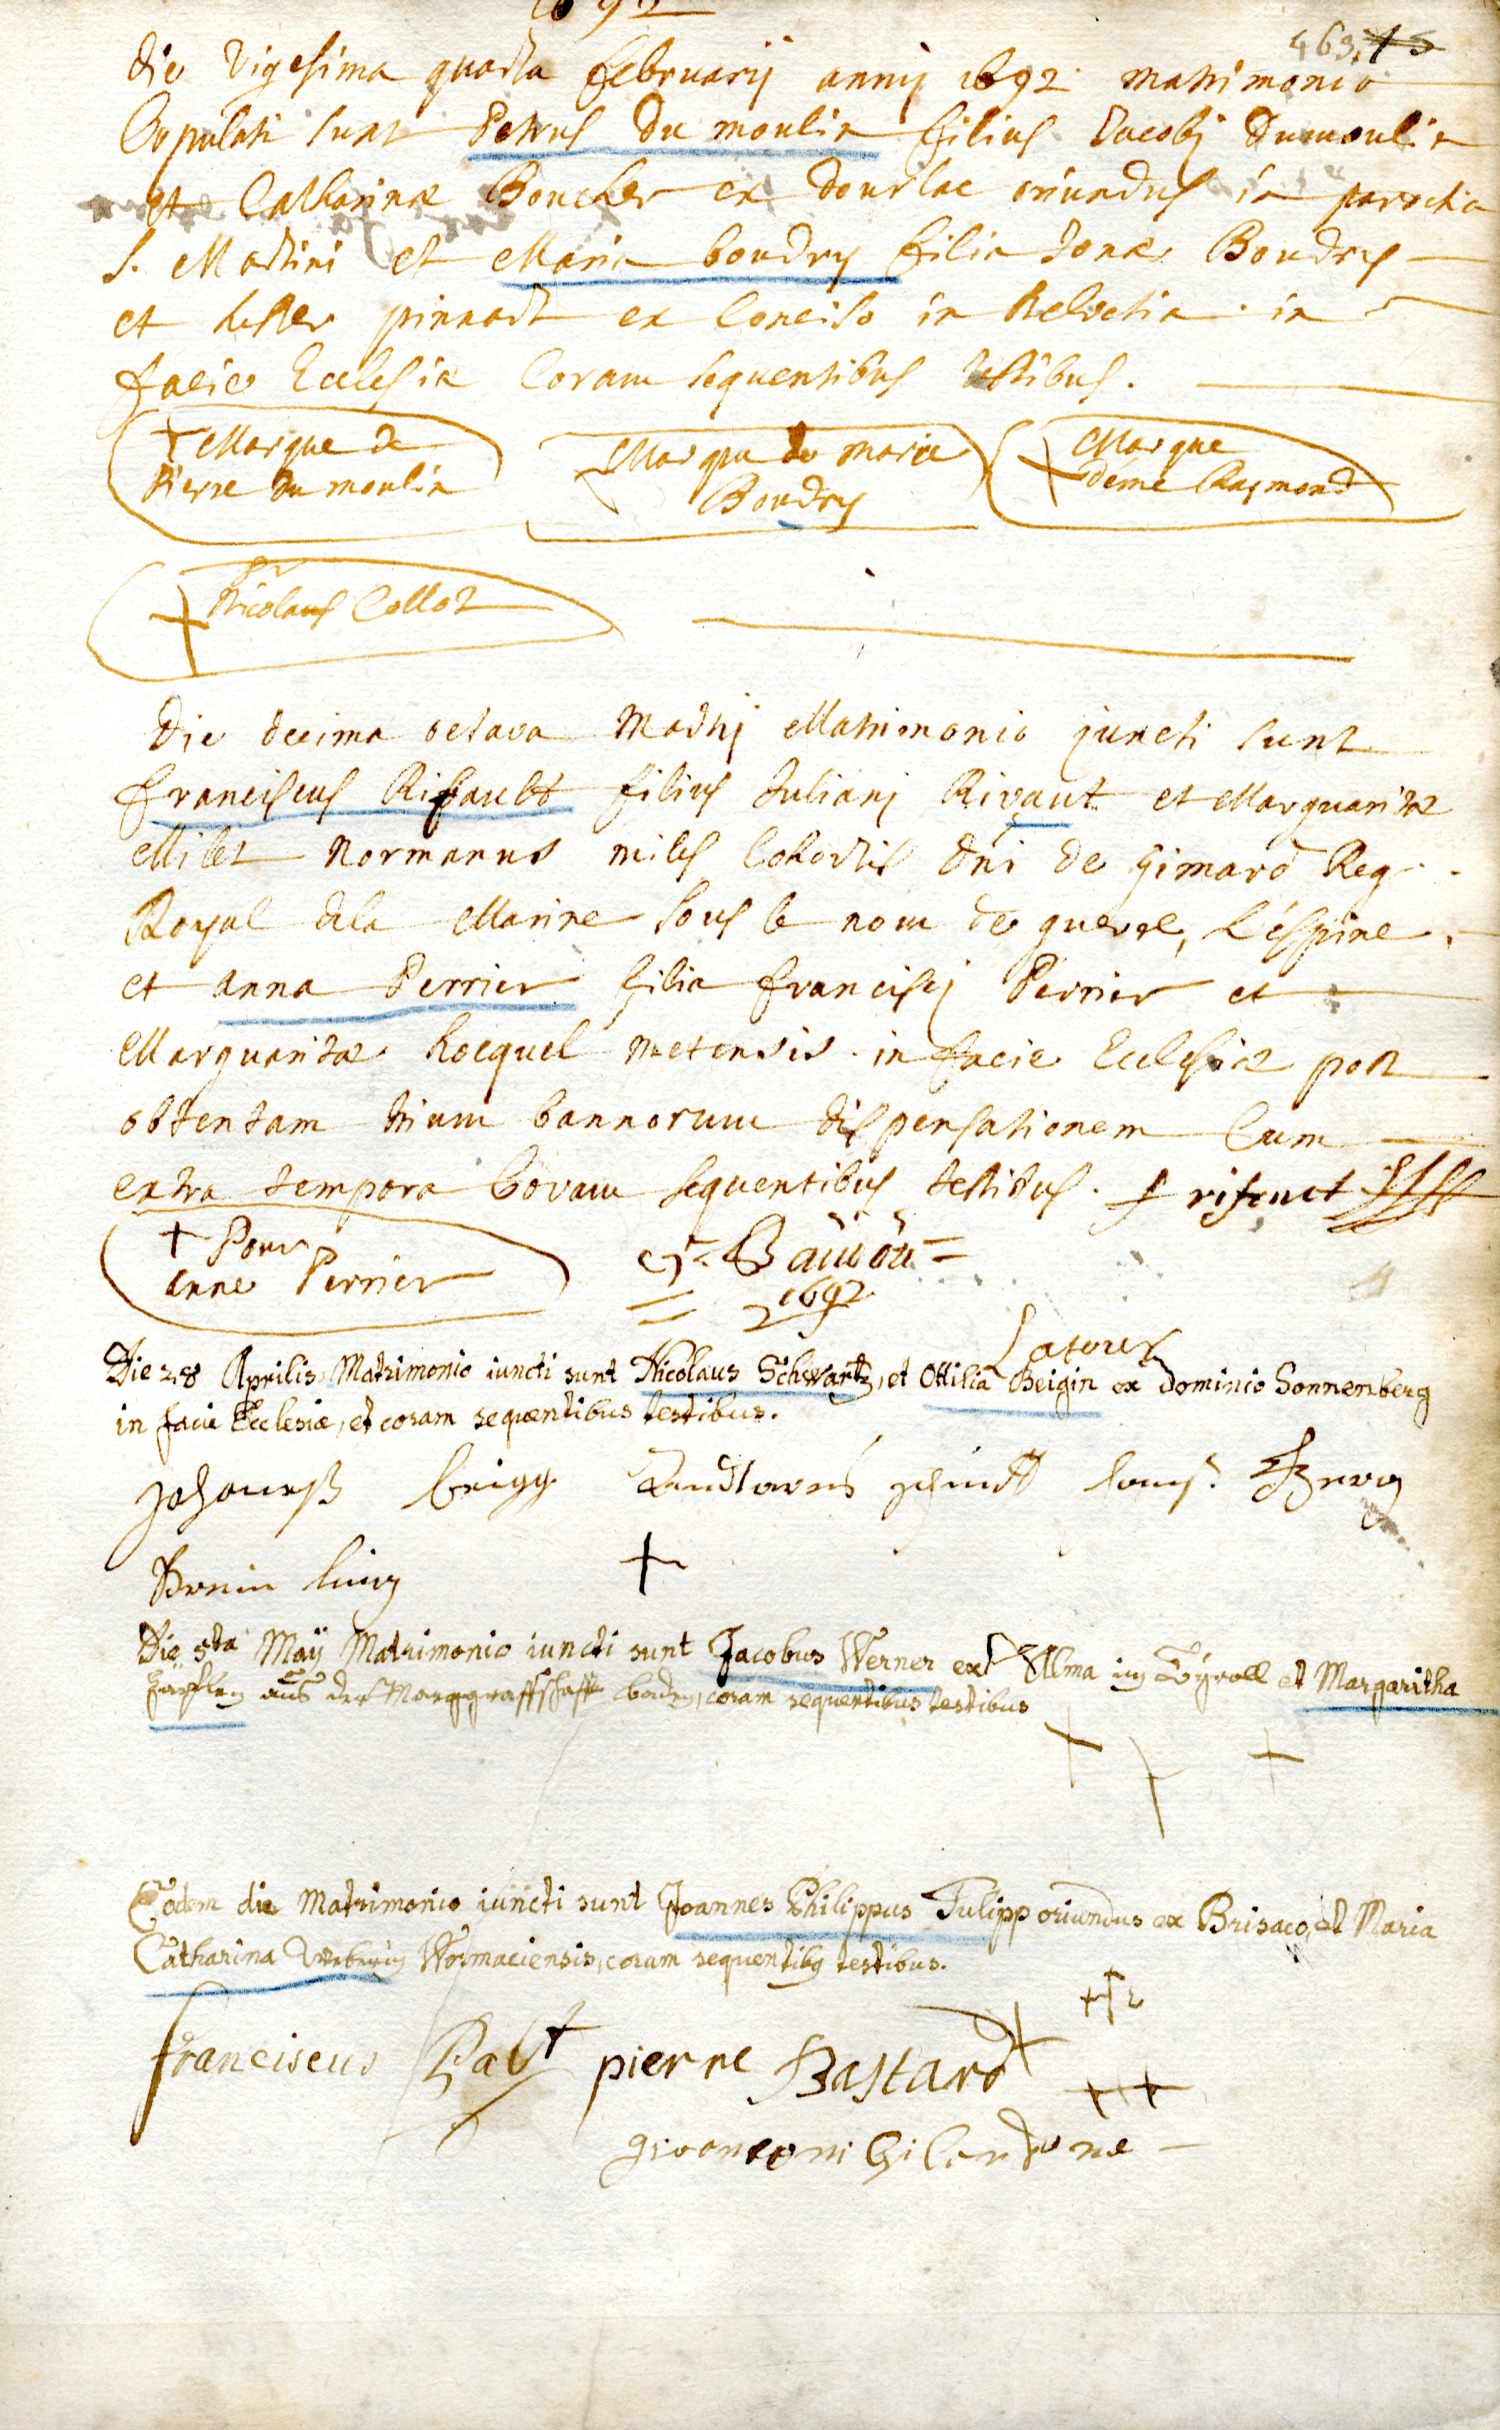 1692
463. 45
Die vigesima quarta februarij annij 1692 matrimonio
Copulati sunt Petrus Du moulin filius Jacobj Dumoulin
et Catharinæ Boucher ex dourlac oriundus in parochia
S. Martini et Maria boudry filia Jonæ Boudry
et Ester pinnart ex Conciso in Helvetia in
facie Ecclesiæ Coram sequentibus testibus.
+ Marque de
Pierre Du moulin
Marque de marie
Boudry
+ Marque
démé Raymond
+ Nicolaus Collot
Die decima octava Martij Matrimonio juncti sunt
franciscus Rifault filius Julianj Rivaut et Marguaritæ
Millet Normanus miles Cohortis Dni de Gimard Reg.
Royal dela Marine sous le nom de guerre, L'éspine.
et anna Perrier filia franciscj Perrier et
Marguaritæ hocquel metensis in facie Ecclesiæ post
obtentam trium bannorum dispensationem Cum
extra tempora Coram sequentibus testibus. f rifauct
+ Pour
anne Perrier
Bauvou
1692
Latour
Die 28 Aprilis Matrimonio iuncti sunt Nicolaus Schwartz, et Ottilia Beigin ex dominio Sonnenberg
in facie Ecclesiæ, et coram sequentibus testibus.
Johannes
+
Die 5ta Maÿ Matrimonio iuncti sunt Jacobus Werner ex Alma im Tÿroll et Margaritha
aus der Marggraffschafft baden, coram sequentibus testibus
+ + +
Eodem die Matrimonio iuncti sunt Joannes Philippus Tulipp oriundus ex Brisaco, et Maria
Catharina Weberin Wormaciensis, coram sequentibus testibus.
franciscus pierre Bastard +
+ +